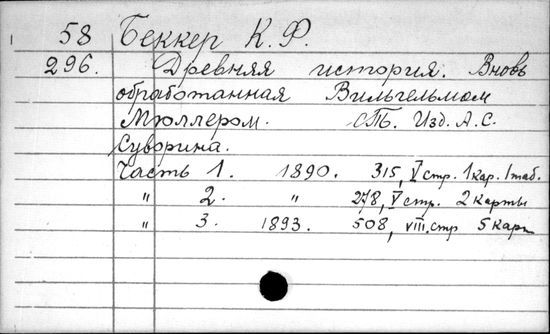 58 Беккер К. Ф.
296. Древняя история. Вновь
обработанная Вильгельмом
Мюллером. СПб. Изд. А.С.
Суворина.
Часть 1. 1890. 315, V стр. 1 кар. 1 таб.
" 2. " 278, V стр. 2 карты
" 3. 1893. 508, VIII. стр 5 карт